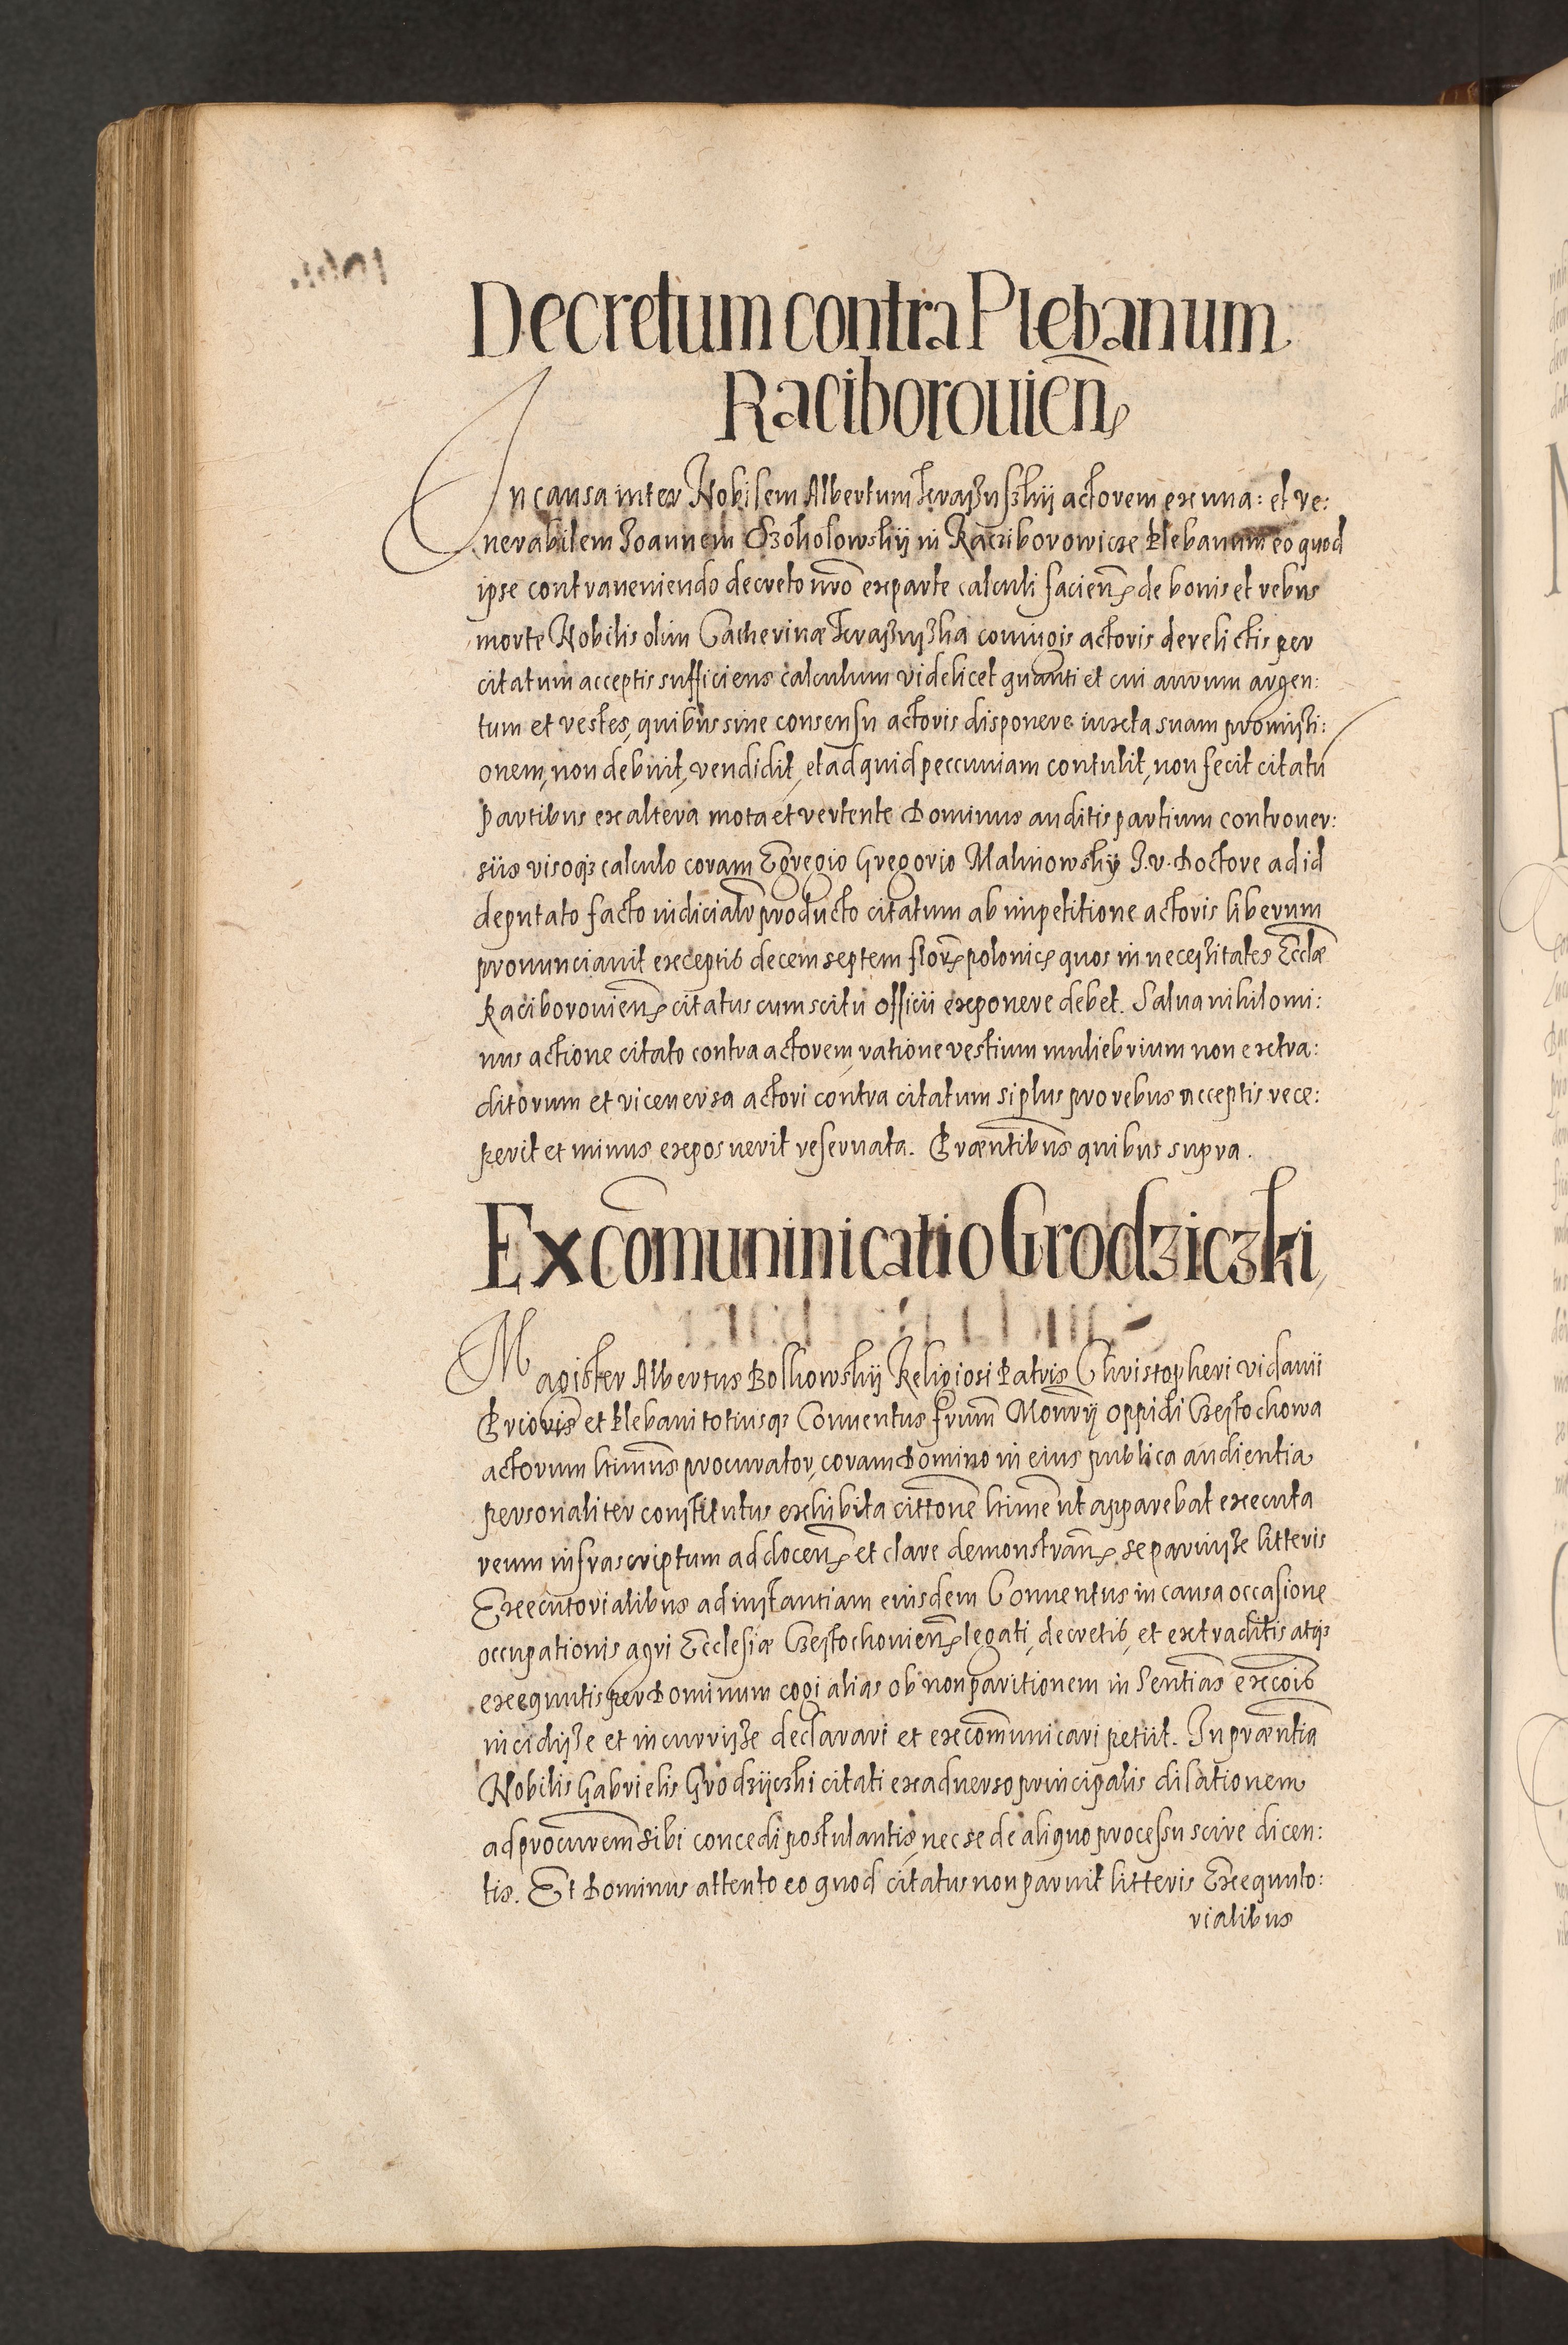 Decretum contra Plebanum
Raciborouień
In causa inter Nobilem Albertum actorem ex una: et ve:
nerabilem Joannem Szokolowskÿ in Racziborowicze Plebanum eo quod
ipse contraueniendo decreto nrō ex parte calculi facień de bonis et rebus
morte Nobilis olim Catherinæ coniugis actoris derelictis per
citatum acceptis sufficiens calculum videlicet quanti et cui aurum argen:
tum et vestes, quibus sine consensu actoris disponere iuxta suam promissi:
onem, non debuit, vendidit, et ad quid peccuniam contulit, non fecit citatū
partibus ex altera mota et vertente Dominus auditis partium controuer:
siis visoq3 calculo coram Egregio Gregorio Malinowskÿ J.v. Doctore ad id
deputato facto iudicialr̄ producto citatum ab impetitione actoris liberum
pronunciauit exceptis decem septem flor̄ polonic quos in necessitates Eccl̄æ
Raciborouień citatus cum scitu officii exponere debet. Salua nihilomi:
nus actione citato contra actorem ratione vestium muliebrium non extra:
ditorum et viceuersa actori contra citatum si plus pro rebus acceptis rece:
perit et minus exposuerit reseruata. Præntibus quibus supra.
Excōmuninicatio Grodziczki
Magister Albertus Bolkowskÿ Religiosi Patris Christopheri vidauii
Prioris et Plebani totiusq3 Conuentus frum̄ Mon̄rÿ oppidi Czestochowa
actorum ltimus̄ procurator, coram Domino in eius publica audientia
personaliter constitutus exhibita cittonē ltime ut apparebat executa
reum infrascriptum ad docen̄ et clare demonstran̄ se paruisse litteris
Executorialibus ad instantiam eiusdem Conuentus in causa occasione
occupationis agri Ecclesiæ Czestochouień legati, decretis, et extraditis atq3
exequutis per Dominum cogi alias ob non paritionem in Sentias̄ excōis
incidisse et incurrisse declarari et excōmunicari petiit. In præntia
Nobilis Gabrielis Grodziczki citati ex aduerso principalis dilationem
ad procurem̄ sibi concedi postulantis, nec se de aliquo processu scire dicen:
tis. Et Dominus attento eo quod citatus non paruit litteris Exequuto:
rialibus